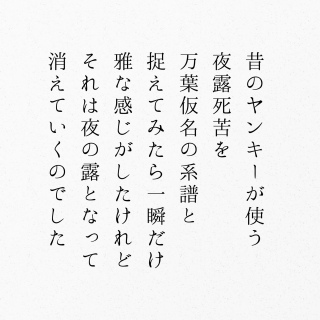 昔のヤンキーが使う
夜露死苦を
万葉仮名の系譜と
捉えてみたら一瞬だけ
雅な感じがしたけれど
それは夜の露となって
消えていくのでした